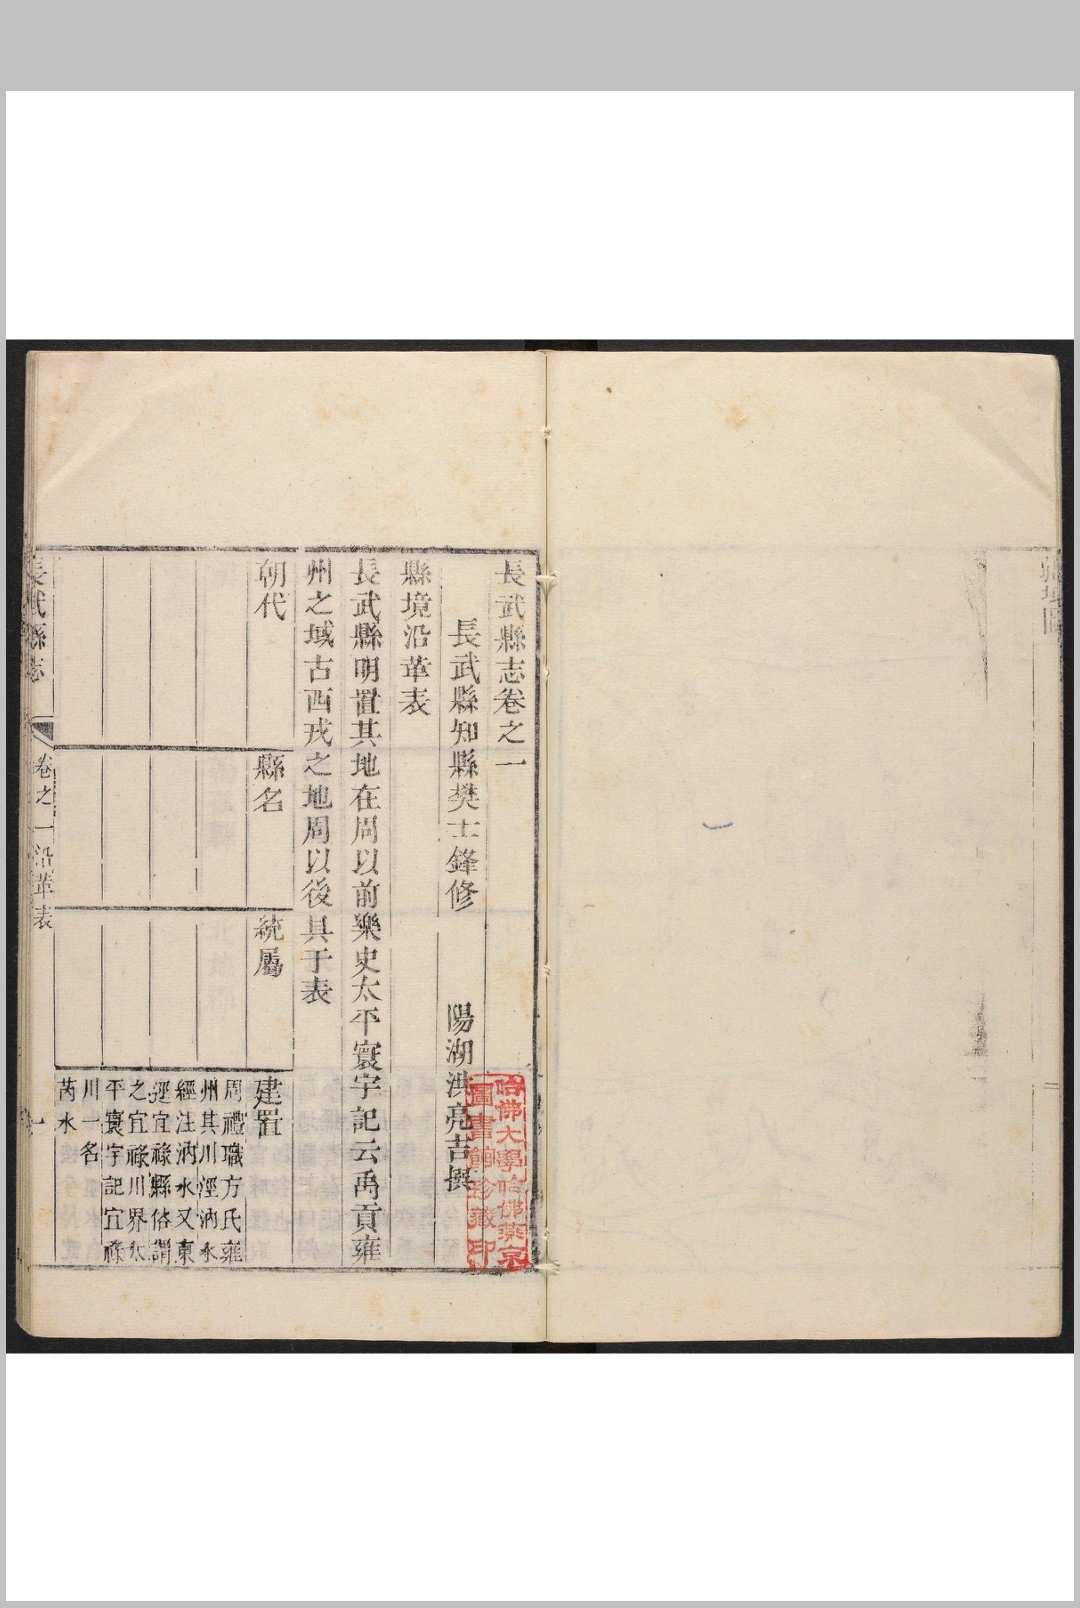 長武縣志卷之一
長武縣知縣樊士鋒修 陽湖洪亮吉撰
縣境沿革表
長武縣明置其地在周以前樂史太平寰宇記云禹貢雍
州之域古西戎之地周以後具于表
朝代
縣名
統屬
建置
周禮職方氏雍
州其川涇汭水
經注汭水又東
逕宜祿縣俗謂
之宜祿川界太
平寰宇記宜祿
川一名
芮水
長武縣志
卷之一沿革表
一
哈佛大學哈佛燕京
圖書館珍藏印